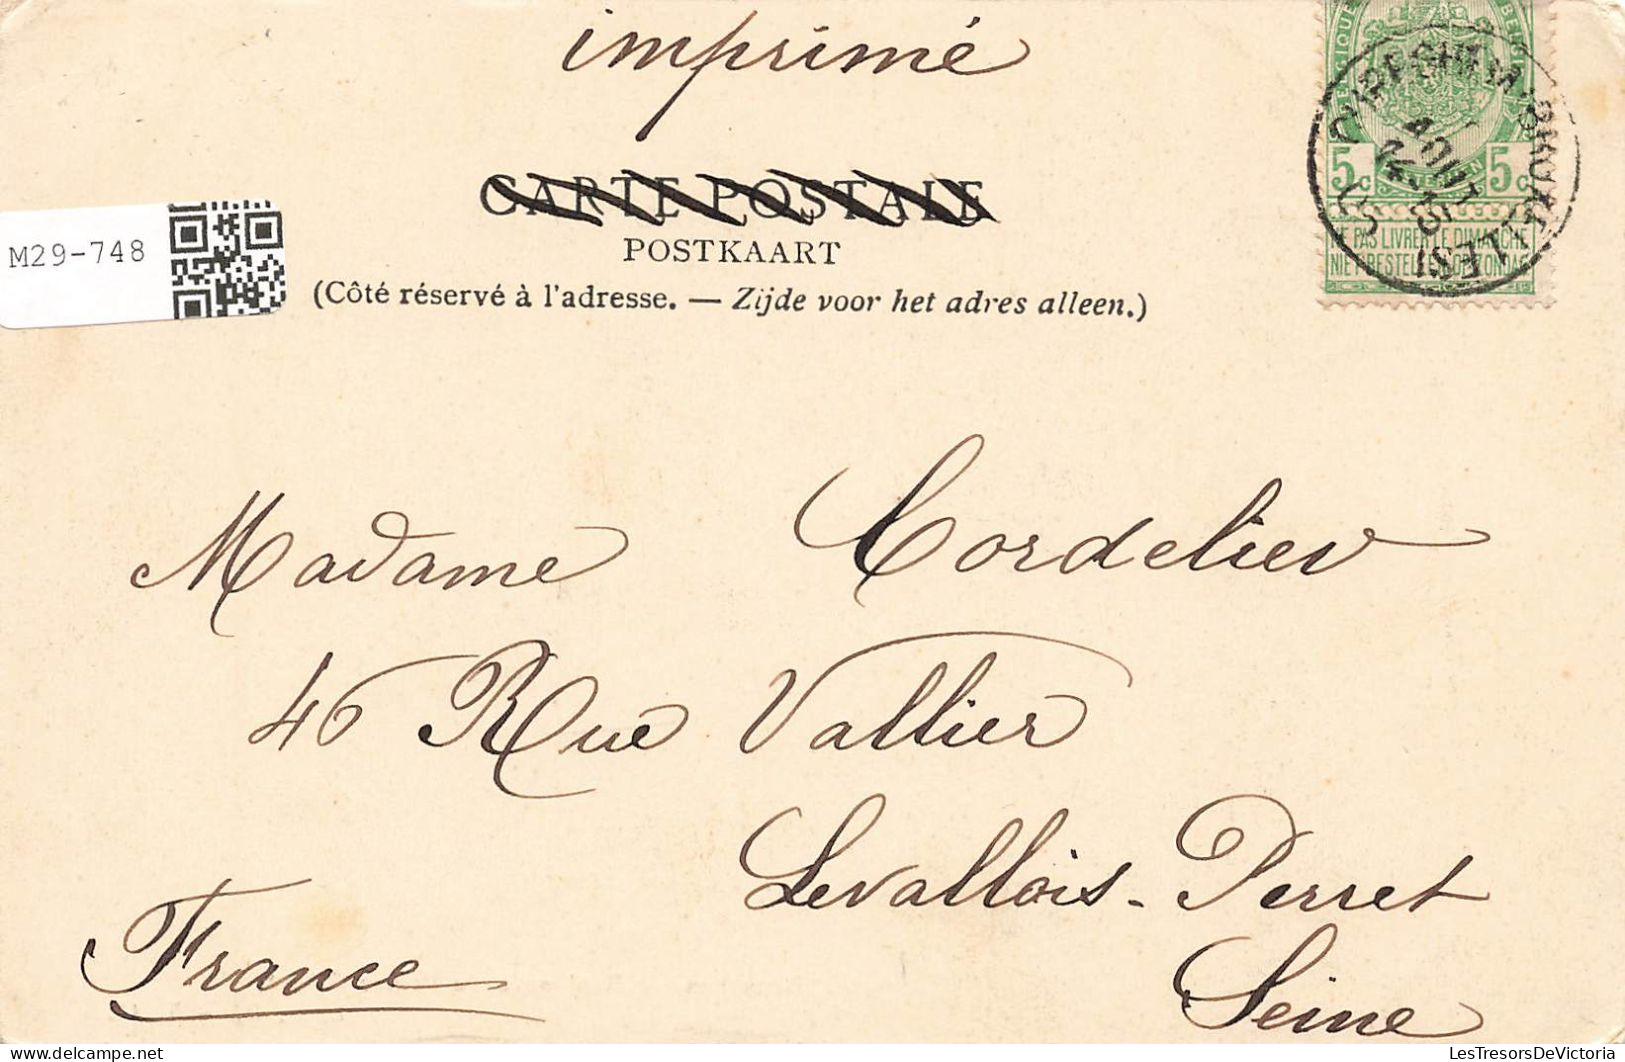 imprimé
CARTE POSTALE
POSTKAART
(Côté réservé à l'adresse. — Zijde voor het adres alleen.)
M29-748
5c 5c
NE PAS LIVRER LE DIMANCHE
NIET BESTELLEN OP ZONDAG
AOUT
Madame Cordelier
46 Rue Vallier
Levallois-Perret
Seine
France
LesTresorsDeVictoria